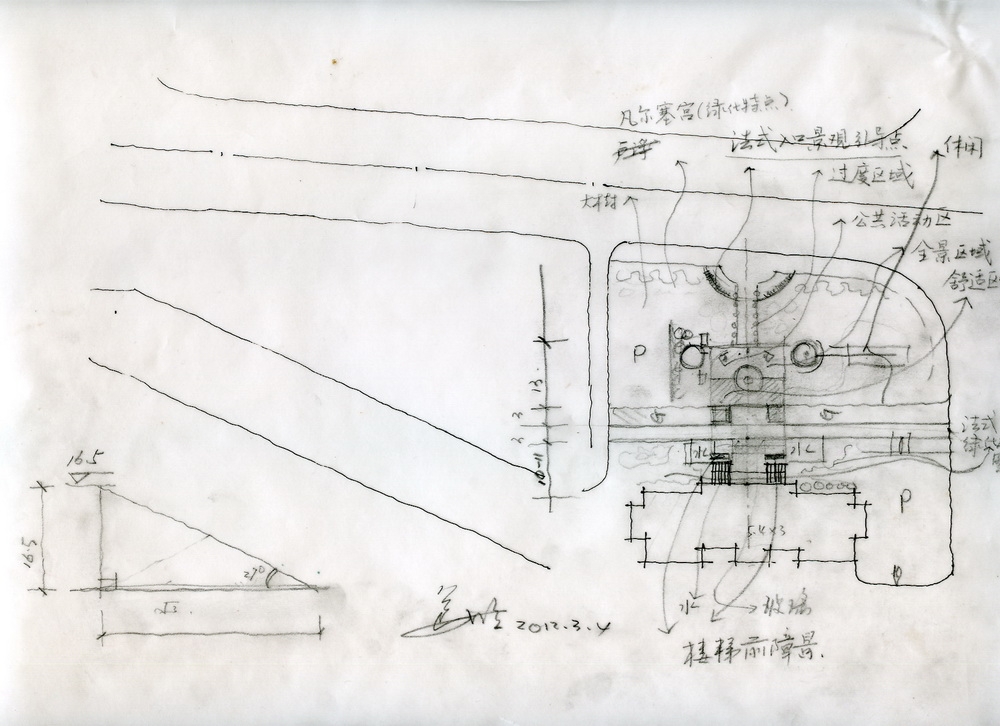 凡尔塞宫(绿化特点)
法式入口景观引导点
休闲
过度区域
大樹
公共活动区
全景区域
舒适区
P
13.
3
3
10-11
G
G
法式
水
水
P
5.4×3
16.5
16.5
27°
√3
水
玻璃
2012.3.4
楼梯前障景.